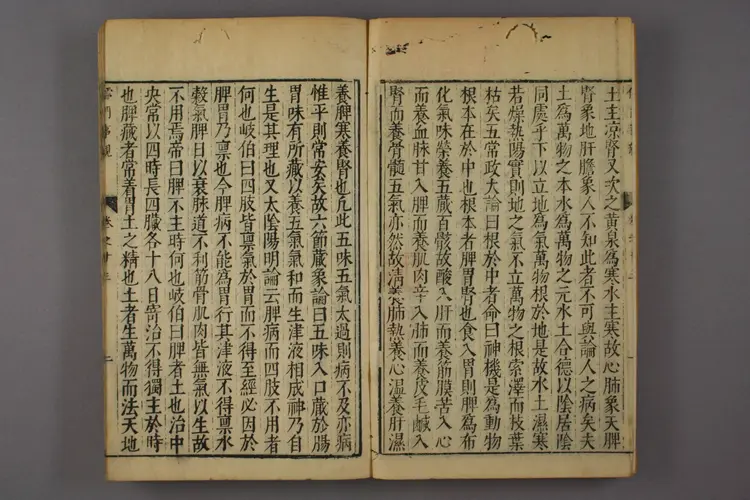 土主凉腎又次之黃泉爲寒水主寒故心肺象天脾
腎象地肝膽象人不知此者不可與論人之病矣夫
土爲萬物之本水爲萬物之元水土合德以陰居陰
同處乎下以立地爲氣萬物根於地是故水土濕寒
若燥熱陽實則地之氣不立萬物之根索澤而枝葉
枯矣五常政大論曰根於中者命曰神機是爲動物
根本在於中也根本者脾胃腎也食入胃則脾爲布
化氣味榮養五藏百骸故酸入肝而養筋膜苦入心
而養血脉甘入脾而養肌肉辛入肺而養皮毛鹹入
腎而養骨髓五氣亦然故清養肺熱養心溫養肝濕
養脾寒養腎也凡此五味五氣太過則病不及亦病
惟平則常安矣故六節藏象論曰五味入口藏於腸
胃味有所藏以養五氣氣和而生津液相成神乃自
生是其理也又太陰陽明論云脾病而四肢不用者
何也岐伯曰四肢皆禀氣於胃而不得至經必因於
脾胃乃禀也今脾病不能爲胃行其津液不得禀水
穀氣脾日以衰脉道不利筋骨肌肉皆無氣以生故
不用焉帝曰脾不主時何也岐伯曰脾者土也治中
央常以四時長四臟各十八日寄治不得獨主於時
也脾藏者常着胃土之精也土者生萬物而法天地